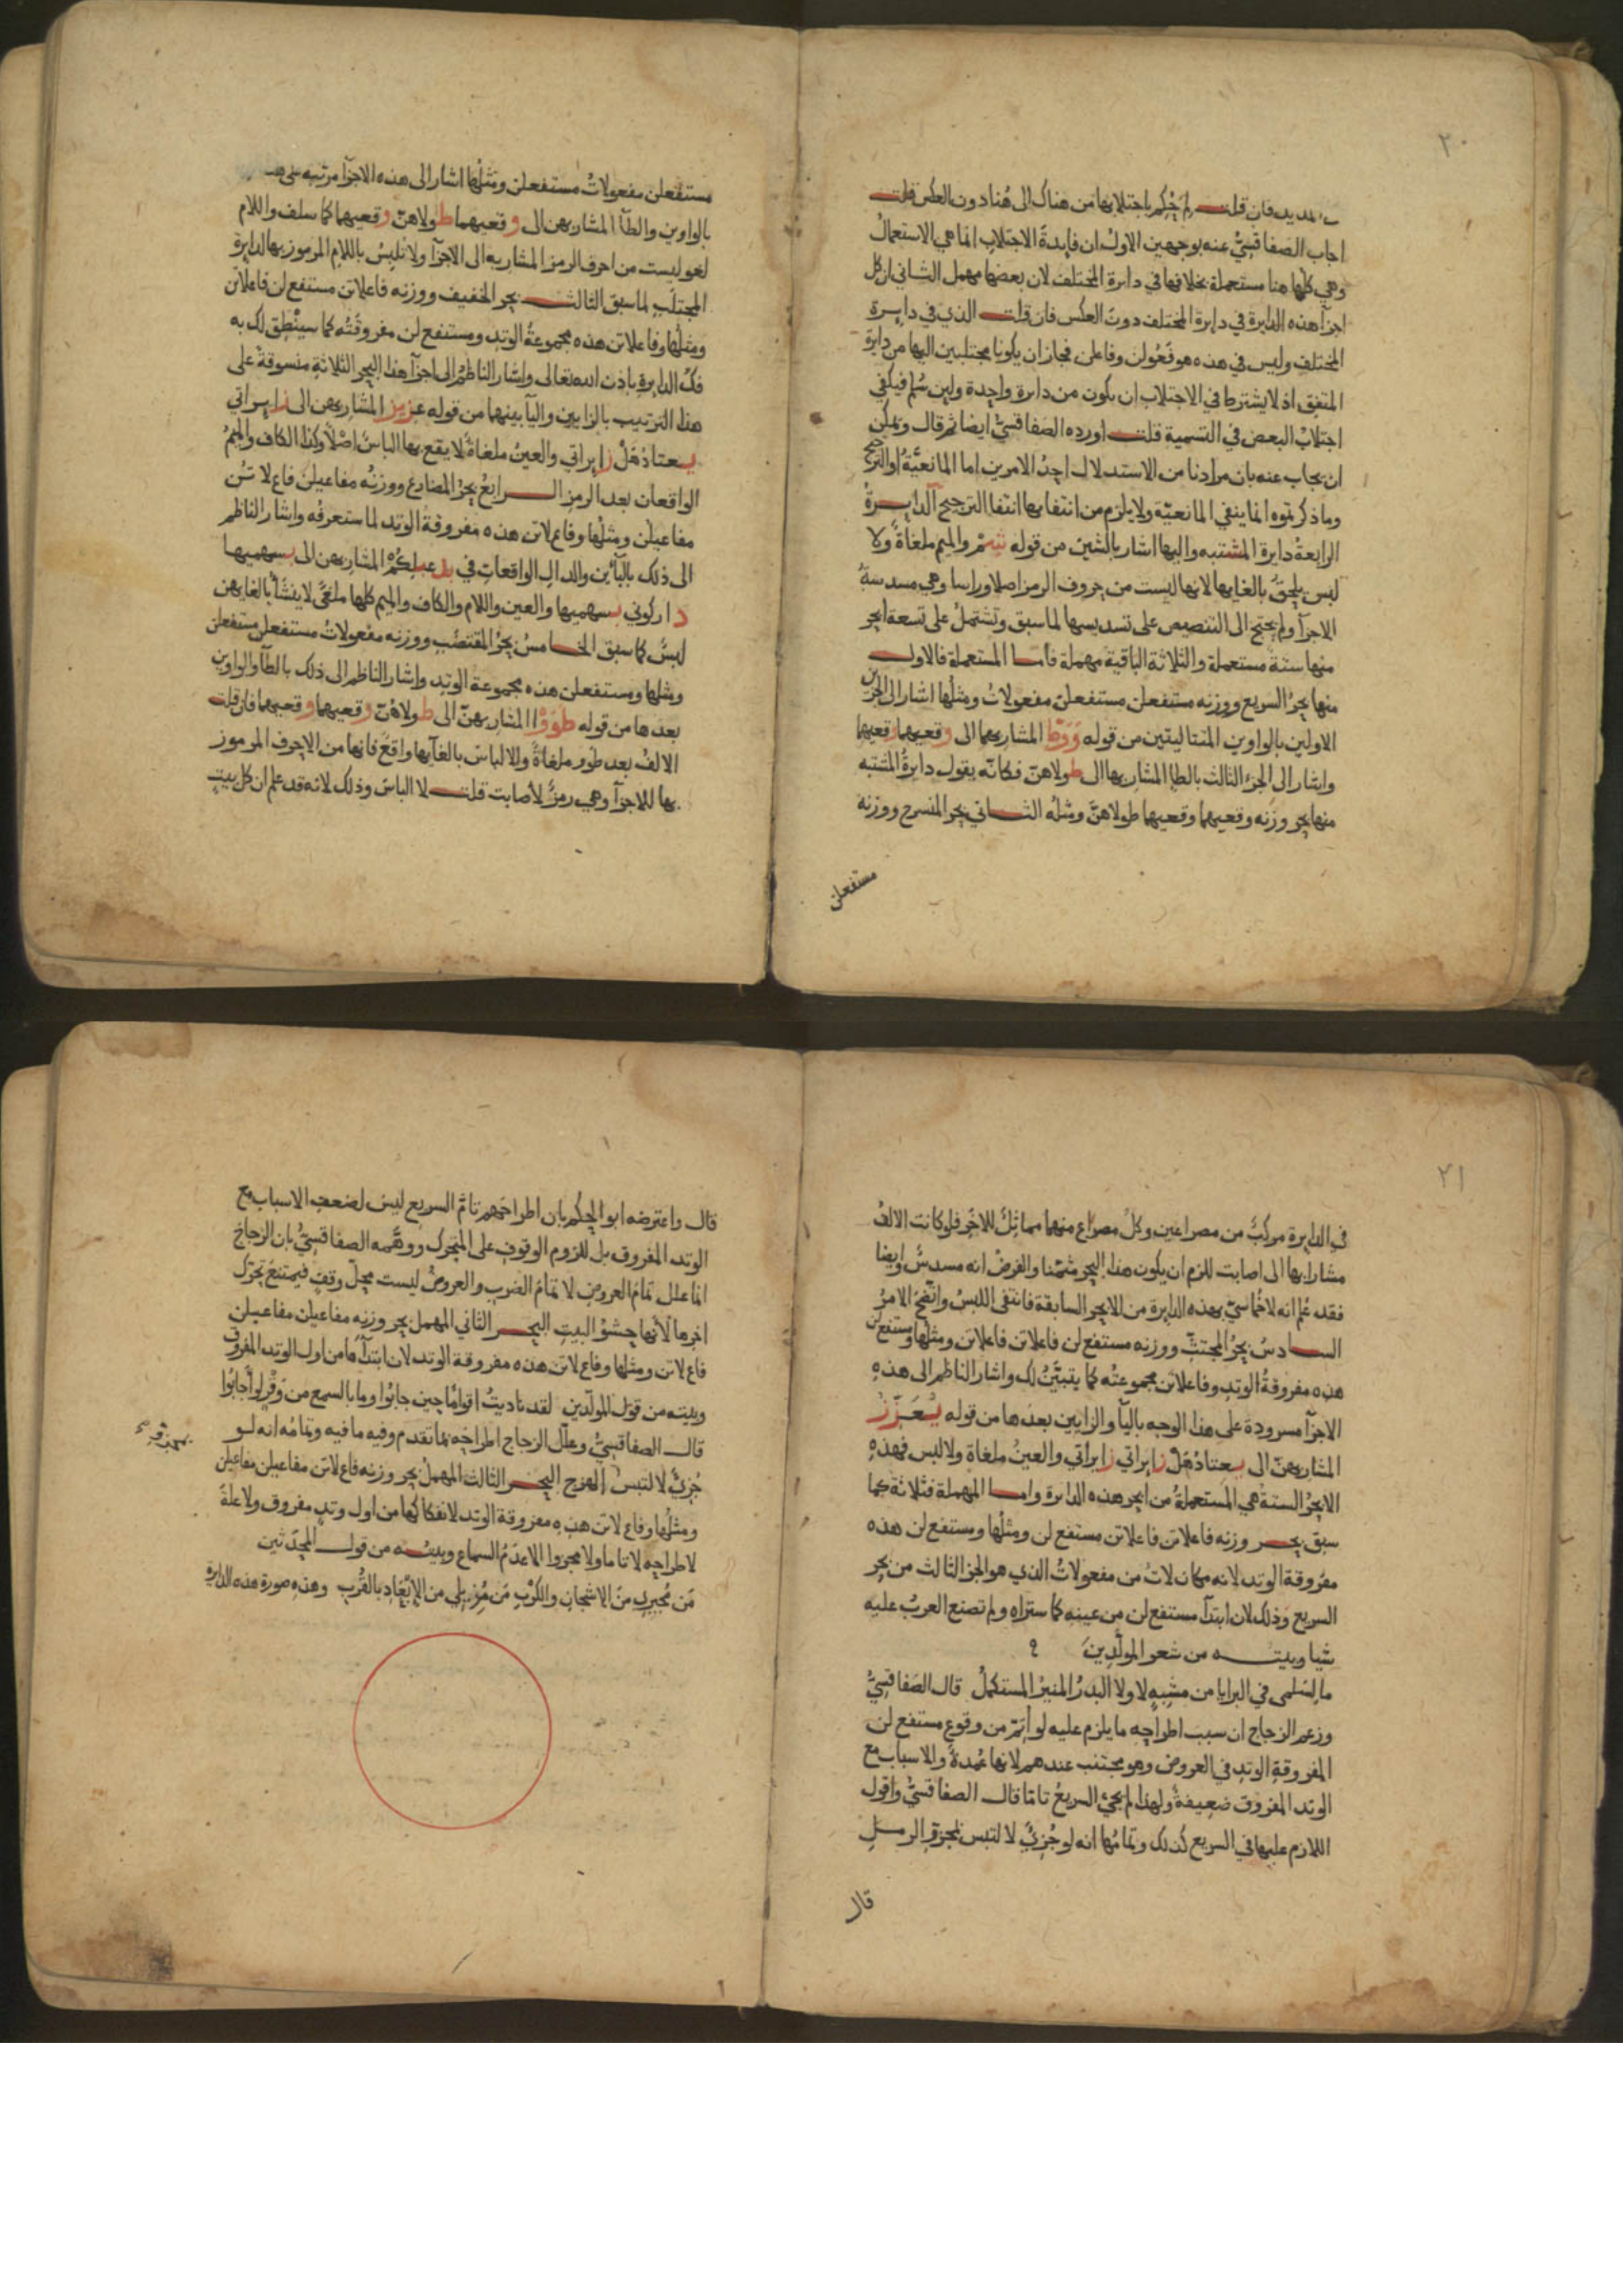 ٢٠
المديد فان قلت لم حكم باجتلابها من هناك الى هنا دون العكس قلت
اجاب الصفاقسيُّ عنه بوجهين الاول ان فايدة الاجتلاب انما هي الاستعمال
وهي كلها هنا مستعملة بخلافها في دايرة المختلف لان بعضها مهمل الثاني ان كل
اجزآ هذه الدايرة في دايرة المختلف دون العكس فان قلت الذي في دايرة
المختلف وليس في هذه هو فعولن وفاعلن فجاز ان يكونا مجتلبين اليها من دايرة
المتفق اذ لا يشترط في الاجتلاب ان يكون من دايرة واحدة ولين سُلم فيكفي
اجتلابُ البعض في التسمية قلت اورده الصفاقسيُّ ايضا ثم قال ويمكن
ان يجاب عنه بان مرادنا من الاستدلال احدُ الامرين اما المانعيَّةُ او الترجيح
وما ذكرتموه انما ينفي المانعيّة ولا يلزم من انتفايها انتفا الترجيح الدايرةُ
الرابعةُ دايرة المشتبه واليها اشار بالشين من قوله شِمْ والميم ملغاةٌ ولا
لبس يلحقُ بالغايها لانها ليست من حروف الرمز اصلا وراسا وهي مسدسةُ
الاجزآ ولم يحتج الى التنصيص على تسديسها لما سبق وتشتملُ على تسعة ابحر
منها ستةٌ مستعملة والثلاثة الباقية مهملة فأما المستعملة فالاول
منها بحرُ السريع ووزنه مستفعلن مستفعلن مفعولاتُ ومثلُها اشار الى الجزئين
الاولين بالواوين المتتاليتين من قوله وَوَطّ المشار بهما الى وقعيهما وقعيهما
واشار الى الجزء الثالث بالطا المشار بها الى طولاهنّ فكانّه يقول دايرةُ المشتبه
منها بحر وزنه وقعيهما وقعيهما طولاهنَّ ومثلُه الثاني بحر المنسرح ووزنه
مستفعلن
مستفعلن مفعولاتُ مستفعلن ومثلُها اشار الى هذه الاجزآ مرتبه على هذ
بالواوين والطآ المشار بهن الى وقعيهما طولاهنّ وقعيهما كما سلف واللام
لغو ليست من احرف الرمز المشار به الى الاجزآ ولا تلبيس باللام المرموز بها الدايرة
المجتلَب لما سبق الثالث بحر الخفيف ووزنه فاعلاتن مستفع لن فاعلاتن
ومثلُها وفاعلاتن هذه مجموعةُ الوتد ومستفع لن مفروقتُه كما سينطق لك به
فكُ الدايرة باذن الله تعالى واشار الناظمُ الى اجزآ هذا البحر الثلاثة منسوقةً على
هذا الترتيب بالزايين واليآ بينهما من قوله عزيز المشار بهن الى زايراتي
يعتادهَلْ زايراتي والعينُ ملغاةٌ لا يقع بها الباسٌ اصْلاً وكذا الكاف والميمُ
الواقعان بعد الرمز الرابعُ بحرُ المضارع ووزنُه مفاعيلن فاع لا تن
مفاعيلن ومثلُها وفاع لاتن هذه مفروقةُ الوتد لما ستعرفُه واشار الناظم
الى ذلك باليآئين والدال الواقعات في يد عيلكُمْ المشار بهن الى يسهميها
داركوني يسهميها والعين واللام والكاف والميم كلها ملغى لا ينشأ بالغايهن
لبسٌ كما سبق الخامسُ بحرُ المقتضب ووزنه مفعولاتُ مستفعلن مستفعلن
ومثلها ومستفعلن هذه مجموعة الوتد واشار الناظم الى ذلك بالطآ والواوين
بعدها من قوله طَوَوْا المشار بهنّ الى طولاهنّ وقعيهما وقعيهما فان قلت
الالفُ بعد طوو ملغاةٌ والالباس بالغآيها واقعٌ فانها من الاحرف المرموز
بها للاجزآ وهي رمزٌ لأصابت قلت لا الباسَ وذلك لانه قد علم ان كل بيت
٢١
في الدايرة مركبٌ من مصراعين وكلُ مصراع منهما مماثلٌ للاخَر فلو كانت الالفُ
مشارا بها الى اصابت للزم ان يكون هذا البحر مثمّنا والفرضُ انه مسدسٌ وايضا
فقد علم انه لا خماسيّ بهذه الدايرة من الابحر السابقة فانتفى اللبسُ واتضح الامرُ
السادسُ بحرُ المجتثّ ووزنه مستفع لن فاعلاتن فاعلاتن ومثلُها ومستفع لن
هذه مفروقةُ الوتدِ وفاعلاتن مجموعتُه كما يتبيَّنُ لك واشار الناظم الى هذهِ
الاجزآ مسرودة على هذا الوجه باليآ والزايين بعدها من قوله يَعَزّزْ
المشار بهنّ الى يعتادهَلْ زايراتي زايراتي والعينُ ملغاة ولا لبس فهذهِ
الابحرُ الستةُ هي المستعملةُ من ابحر هذه الدايرة وامـا المهملة فثلاثة كما
سبق بحـر وزنه فاعلاتن فاعلاتن مستفع لن ومثلُها ومستفع لن هذه
مفروقة الوتد لانه مكان لاتُ من مفعولاتُ الذي هو الجز الثالث من بحر
السريع وذلك لان ابتدآ مستفع لن من عينه كما ستراه ولم تصنع العربُ عليه
شيا وبيتـه من شعر المولّدين
ما لسَلمى في البرايا من مشبهٍ لا ولا البدرُ المنيرُ المستكملُ قال الصفاقسيُّ
وزعم الزجاج ان سبب اطراحه ما يلزم عليه لو اتمّ من وقوع مستفع لن
المفروقةِ الوتدِ في العروض وهو مجتنب عندهم لانها عُمدةٌ والاسباب مع
الوتد المفروق ضعيفةٌ ولهذا لم يجئ السريعُ تامّا قال الصفاقسيُّ واقول
اللازم عليها في السريع كذلك وتمامُها انه لو جُزئَ لالتبس بمجزو الرمـل
قال
قال واعترضه ابو الحكم بان اطراحَهم تامَّ السريع ليس لضعف الاسباب مع
الوتد المفروف بل للزوم الوقوف على المتحرك ووهّمه الصفاقسيُّ بان الزجاج
انما علل تمامَ العروض لا تمامَ الضرب والعروضُ ليست محلّ وقفٍ فيمتنعَ تحرّك
اخرها لأنها حشوُ البيت البحـر الثاني المهمل بحر وزنه مفاعيلن مفاعيلن
فاع لاتن ومثلها وفاع لاتن هذه مفروقة الوتد لان ابتدآءها من اول الوتد المفروق
وبيته من قول المولّدين لقد ناديتُ اقوامًا حين جابُوا وما بالسمع من وَقْرٍ لو أجابُوا
قال الصفاقسيُّ وعلّل الزجاج اطراحَه بما تقدم وفيه ما فيه وتمامُه انه لـو
جُزئَ لالتبس الهزج البحـر الثالث المهملُ بحر وزنه فاع لاتن مفاعيلن مفاعيلن
ومثلُها وفاع لاتن هذهِ مفروقة الوتد لانفكاكها من اول وتدٍ مفروق ولا علةَ
لاطراحِه لا تاما ولا مجزوا الا عدَمُ السماع وبيتـه من قول المحدَثين
مَن مُجيري مِنَ الاشجان والكَرْبِ مَن مُزيلي من الإبْعَادِ بالقُرْبِ وهذه صورة هذه الدايرة